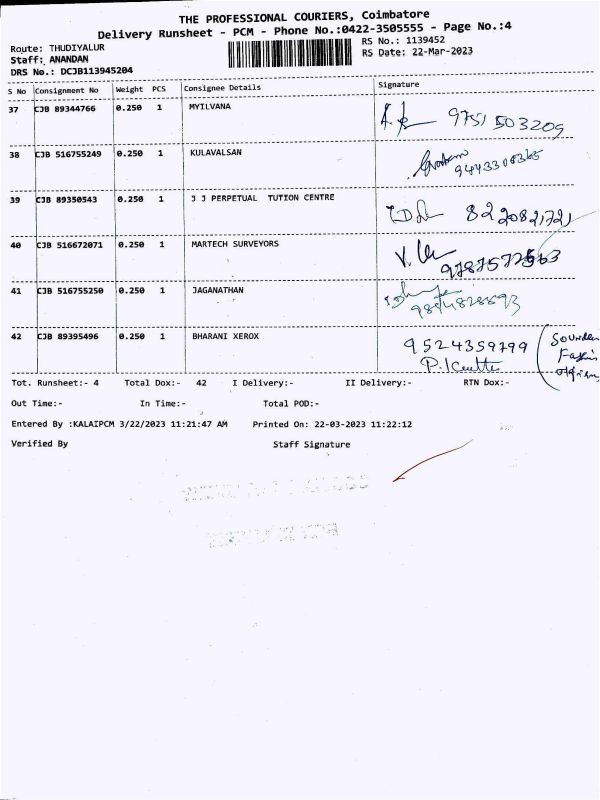 THE PROFESSIONAL COURIERS, Coimbatore
Delivery Runsheet - PCM - Phone No.:0422-3505555 - Page No.:4
Route: THUDIYALUR
RS No.: 1139452
Staff: ANANDAN
RS Date: 22-Mar-2023
DRS No.: DCJB113945204
S No Consignment No Weight PCS Consignee Details Signature
37 CJB 89344766 0.250 1 MYILVANA
9751 503209
38 CJB 516755249 0.250 1 KULAVALSAN
39 CJB 89350543 0.250 1 J J PERPETUAL TUTION CENTRE
8220821721
40 CJB 516672071 0.250 1 MARTECH SURVEYORS
41 CJB 516755250 0.250 1 JAGANATHAN
42 CJB 89395496 0.250 1 BHARANI XEROX
9524359799
Tot. Runsheet:- 4 Total Dox:- 42 I Delivery:- II Delivery:- RTN Dox:-
Out Time:- In Time:- Total POD:-
Entered By :KALAIPCM 3/22/2023 11:21:47 AM Printed On: 22-03-2023 11:22:12
Verified By Staff Signature